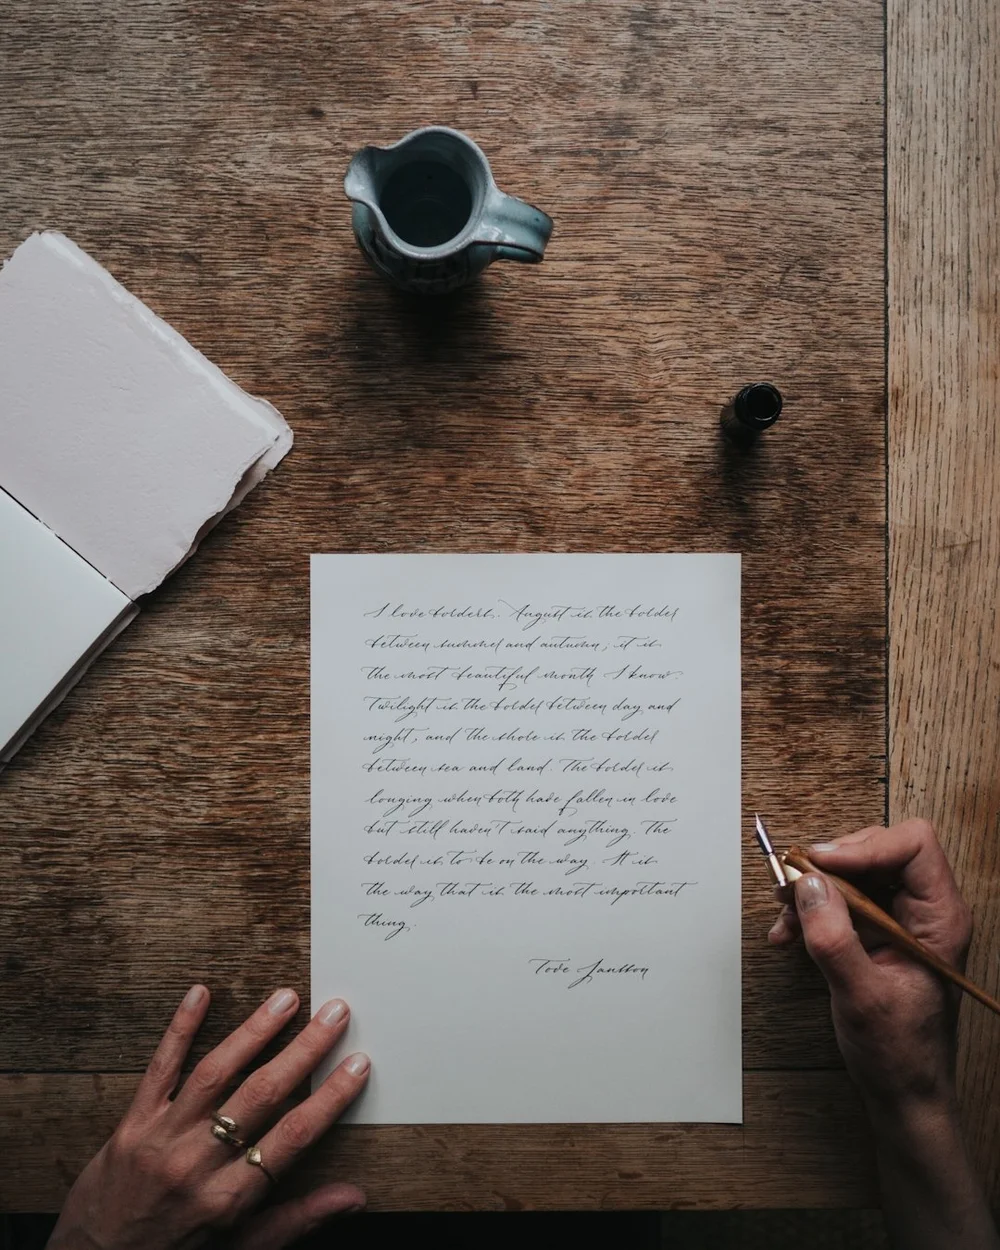 I love borders. August is the border
between summer and autumn; it is
the most beautiful month I know.
Twilight is the border between day and
night, and the shore is the border
between sea and land. The border is
longing when both have fallen in love
but still haven't said anything. The
border is to be on the way. It is
the way that is the most important
thing.
Tove Jansson